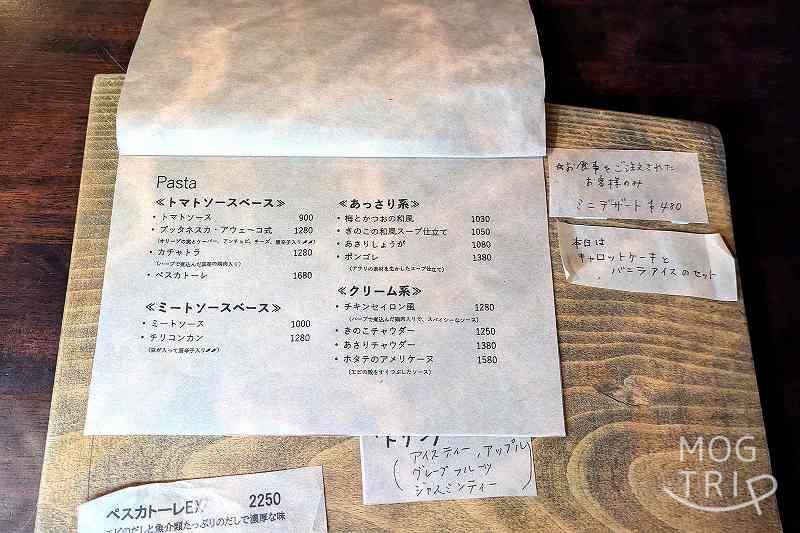 Pasta
≪トマトソースベース≫
・トマトソース 900
・プッタネスカ・アヴェーコ式 1280
・カチャトラ 1280
(ハーブで煮込んだ国産の鶏肉入り)
・ペスカトーレ 1680
≪ミートソースベース≫
・ミートソース 1000
・チリコンカン 1280
(豆が入って唐辛子入り🌶🌶)
≪あっさり系≫
・梅とかつおの和風 1030
・きのこの和風スープ仕立て 1050
・あさりしょうが 1080
・ボンゴレ 1380
(アサリの素材を生かしたスープ仕立て)
≪クリーム系≫
・チキンセイロン風 1280
(ハーブで煮込んだ鶏肉入りで、スパイシーなソース)
・きのこチャウダー 1250
・あさりチャウダー 1380
・ホタテのアメリケーヌ 1580
(エビの殻をすりつぶしたソース)
☆お食事をご注文された
お客様のみ
ミニデザート ¥480
本日は
キャロットケーキと
バニラアイスのセット
・ドリンク
(アイスティー、アップル
グレープフルーツ
ジャスミンティー)
ペスカトーレEX 2250
エビのだしと魚介類たっぷりのだしで濃厚な味
MOG
TRIP